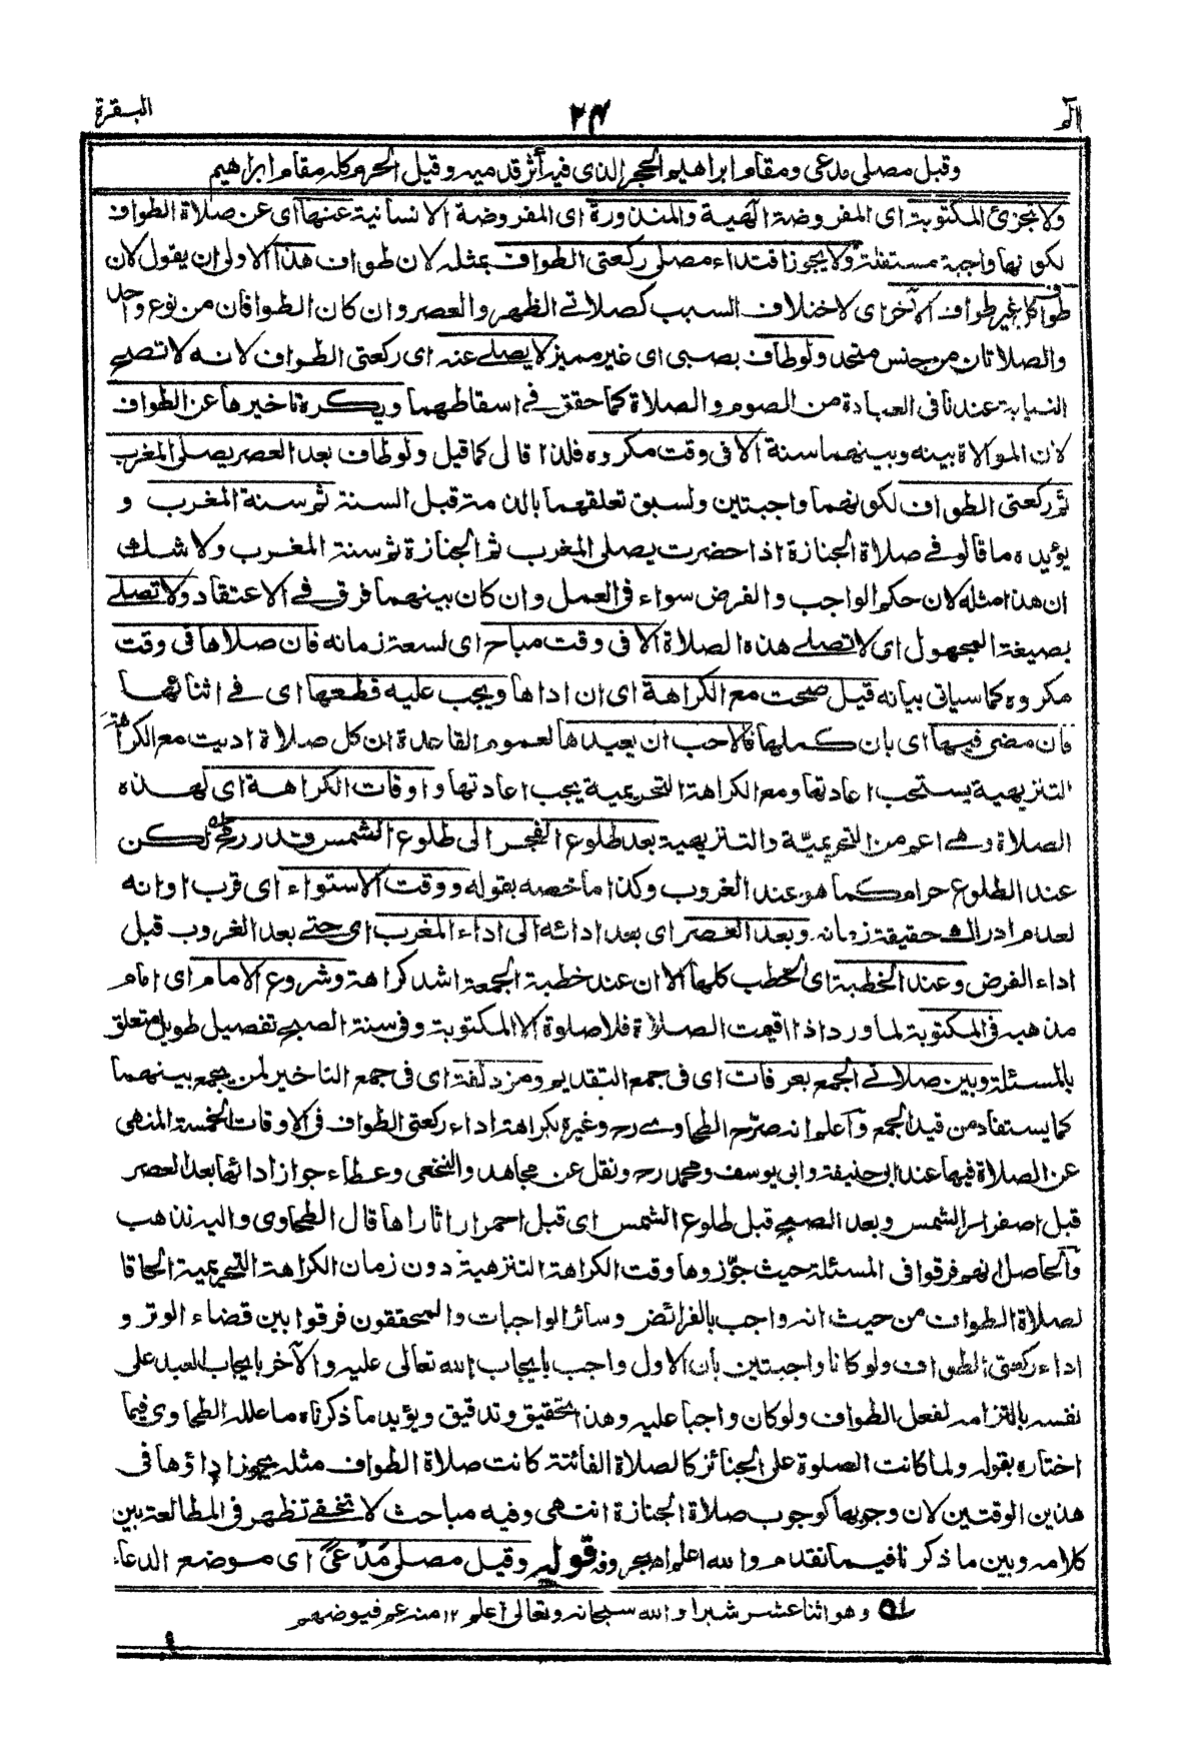 الٓمٓ ٢٤ البقرة
وقيل مصلى مدعى ومقام ابراهيم الحجر الذى فيه أثر قدميه وقيل الحرم كله مقام ابراهيم
ولا تجزئ المكتوبة اى المفروضة الٰهية والمنذورة اى المفروضة الانسانية عنها اى عن صلاة الطواف
لكونها واجبة مستقلة ولا يجوز اقتداء مصلى ركعتى الطواف بمثله لان طواف هذا الاولى ان يقول لان
طواف كل غير طواف الآخر اى لاختلاف السبب كصلاتى الظهر والعصر وان كان الطوافان من نوع واحد
والصلاتان من جنس متحد ولو طاف بصبى اى غير مميز لا يصلى عنه اى ركعتى الطواف لانه لا تصح
النيابة عندنا فى العبادة من الصوم والصلاة كما حقق فى اسقاطهما ويكره تاخيرها عن الطواف
لان الموالاة بينه وبينهما سنة الا فى وقت مكروه فلذا قال كما قيل ولو طاف بعد العصر يصلى المغرب
ثم ركعتى الطواف لكونهما واجبتين ولسبق تعلقهما بالذمة قبل السنة ثم سنة المغرب و
يؤيده ما قالو فى صلاة الجنازة اذا حضرت يصلى المغرب ثم الجنازة ثم سنة المغرب ولا شك
ان هذا مثله لان حكم الواجب والفرض سواء فى العمل وان كان بينهما فرق فى الاعتقاد ولا تصلى
بصيغة المجهول اى لا تصلى هذه الصلاة الا فى وقت مباح اى لسعة زمانه فان صلاها فى وقت
مكروه كما سياتى بيانه قيل صحت مع الكراهة اى ان اداها ويجب عليه قطعها اى فى اثنائها
فان مضى فيها اى بان كملها فالاحب ان يعيدها لعموم القاعدة ان كل صلاة اديت مع الكراهة
التنزيهية يستحب اعادتها ومع الكراهة التحريمية يجب اعادتها واوقات الكراهة اى لهذه
الصلاة وهى اعم من التحريميّة والتنزيهية بعد طلوع الفجر الى طلوع الشمس وقدر رمح لكن
عند الطلوع حرام كما هو عند الغروب وكذا ما خصه بقوله ووقت الاستواء اى قرب اوانه
لعدم ادراك حقيقة زمانه وبعد العصر اى بعد ادائه الى اداء المغرب اى حتى بعد الغروب قبل
اداء الفرض وعند الخطبة اى الخطب كلها الا ان عند خطبة الجمعة اشد كراهة وشروع الامام اى امام
مذهبه فى المكتوبة لما ورد اذا اقيمت الصلاة فلا صلوة الا المكتوبة وفى سنة الصبح تفصيل طويل متعلق
بالمسئلة وبين صلاتى الجمع بعرفات اى فى جمع التقديم ومزدلفة اى فى جمع التاخير لمن يجمع بينهما
كما يستفاد من قيد الجمع وآعلم انه صرّح الطحاوى رح وغيره بكراهة اداء ركعتى الطواف فى الاوقات الخمسة المنهى
عن الصلاة فيها عند ابى حنيفة وابى يوسف ومحمد رح ونقل عن مجاهد والنخعى وعطاء جواز ادائها بعد العصر
قبل اصفرار الشمس وبعد الصبح قبل طلوع الشمس اى قبل احمرار اثارها قال الطحاوى واليه نذهب
وآلحاصل انهم فرقوا فى المسئلة حيث جوّزوها وقت الكراهة التنزهية دون زمان الكراهة التحريمية الحاقا
لصلاة الطواف من حيث انه واجب بالفرائض وسائر الواجبات والمحققون فرقوا بين قضاء الوتر و
اداء ركعتى الطواف ولو كانا واجبتين بان الاول واجب بايجاب الله تعالى عليه والآخر بايجاب العبد على
نفسه بالتزامه لفعل الطواف ولو كان واجبا عليه وهذا تحقيق وتدقيق ويؤيد ما ذكرناه ما علله الطحاوى فيما
اختاره بقوله ولما كانت الصلوة على الجنائز كالصلاة الفائتة كانت صلاة الطواف مثله يجوز اداؤها فى
هذين الوقتين لان وجوبها كوجوب صلاة الجنازة انتهى وفيه مباحث لا تخفى تظهر فى المطالعة بين
كلامه وبين ما ذكرنا فيما تقدم والله اعلم اه بحروفه قوله وقيل مصلى مُدَّعًى اى موضع الدعاء
وهو اثنا عشر شبرا والله سبحانه وتعالى اعلم ١٢ منه عم فيوضهم